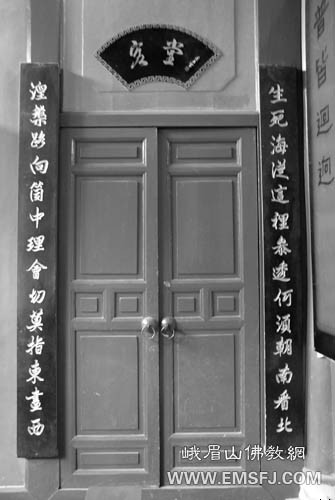 客堂
生死海從這裡參透何須朝南看北
涅槃路向箇中理會切莫指東畫西
普皆迴
峨眉山佛教網
WWW.EMSFJ.COM